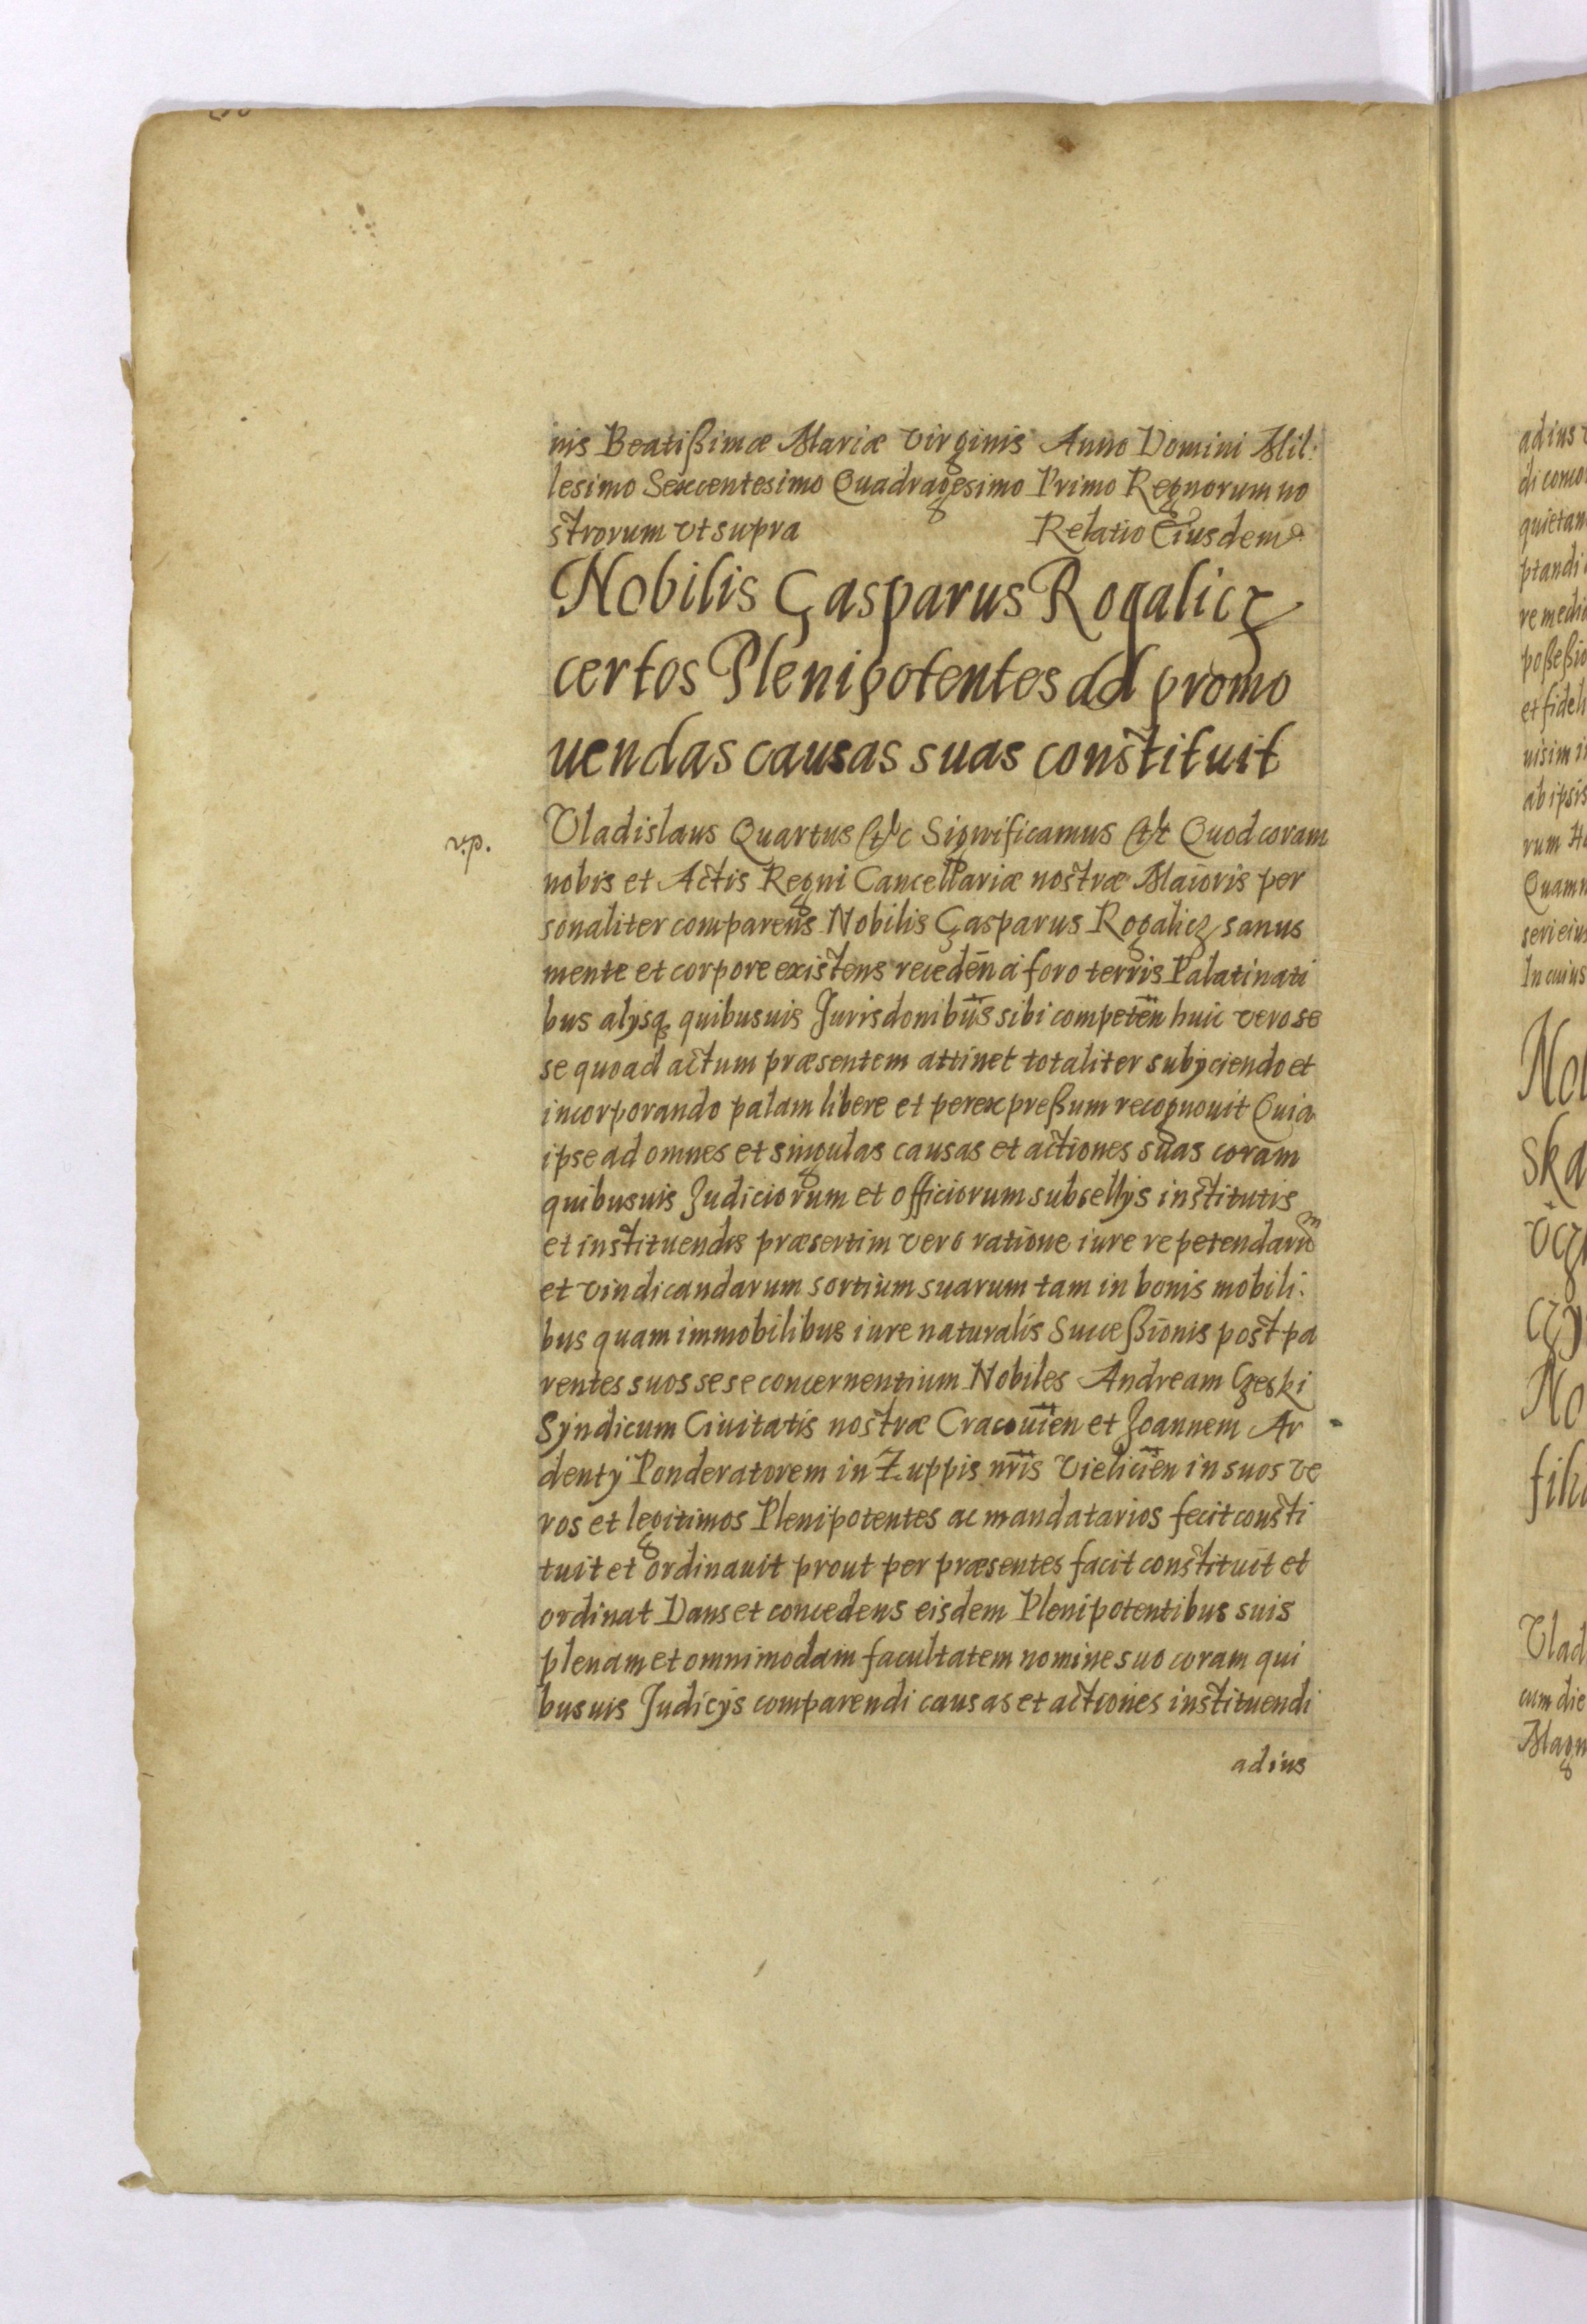 nis Beatißimæ Mariæ Virginis Anno Domini Mil:
lesimo Sexcentesimo Quadragesimo Primo Regnorum no
strorum Vt supra Relatio Eiusdem
Nobilis Gasparus Rogalicz
certos Plenipotentes ad promo
uendas causas suas constituit
v.p.
Vladislaus Quartus &c Significamus && Quod coram
nobis et Actis Regni Cancellariæ nostræ Maioris per
sonaliter comparens Nobilis Gasparus Rogalicz sanus
mente et corpore existens receden̄ a foro terris Palatinati
bus alysq quibusuis Jurisdonibus sibi competen̄ huic vero se
se quoad actum præsentem attinet totaliter subyciendo et
incorporando palam libere et per expreßum recognouit Quia
ipse ad omnes et singulas causas et actiones suas coram
quibusuis Judiciorum et officiorum subsellys institutis
et instituendis præsertim vero ratione iure repetendarum
et vindicandarum sortium suarum tam in bonis mobili:
bus quam immobilibus iure naturalis Succeßionis post pa
rentes suos sese concernentium Nobiles Andream Czeski
Syndicum Ciuitatis nostræ Cracouien̄ et Joannem Ar
denty Ponderatorem in Zuppis nr̄is Vielicien̄ in suos ve
ros et legitimos Plenipotentes ac mandatarios fecit consti
tuit et ordinauit prout per præsentes facit constituit et
ordinat Dans et concedens eisdem Plenipotentibus suis
plenam et omnimodam facultatem nomine suo coram qui
busuis Judicys comparendi causas et actiones instituendi
ad ius